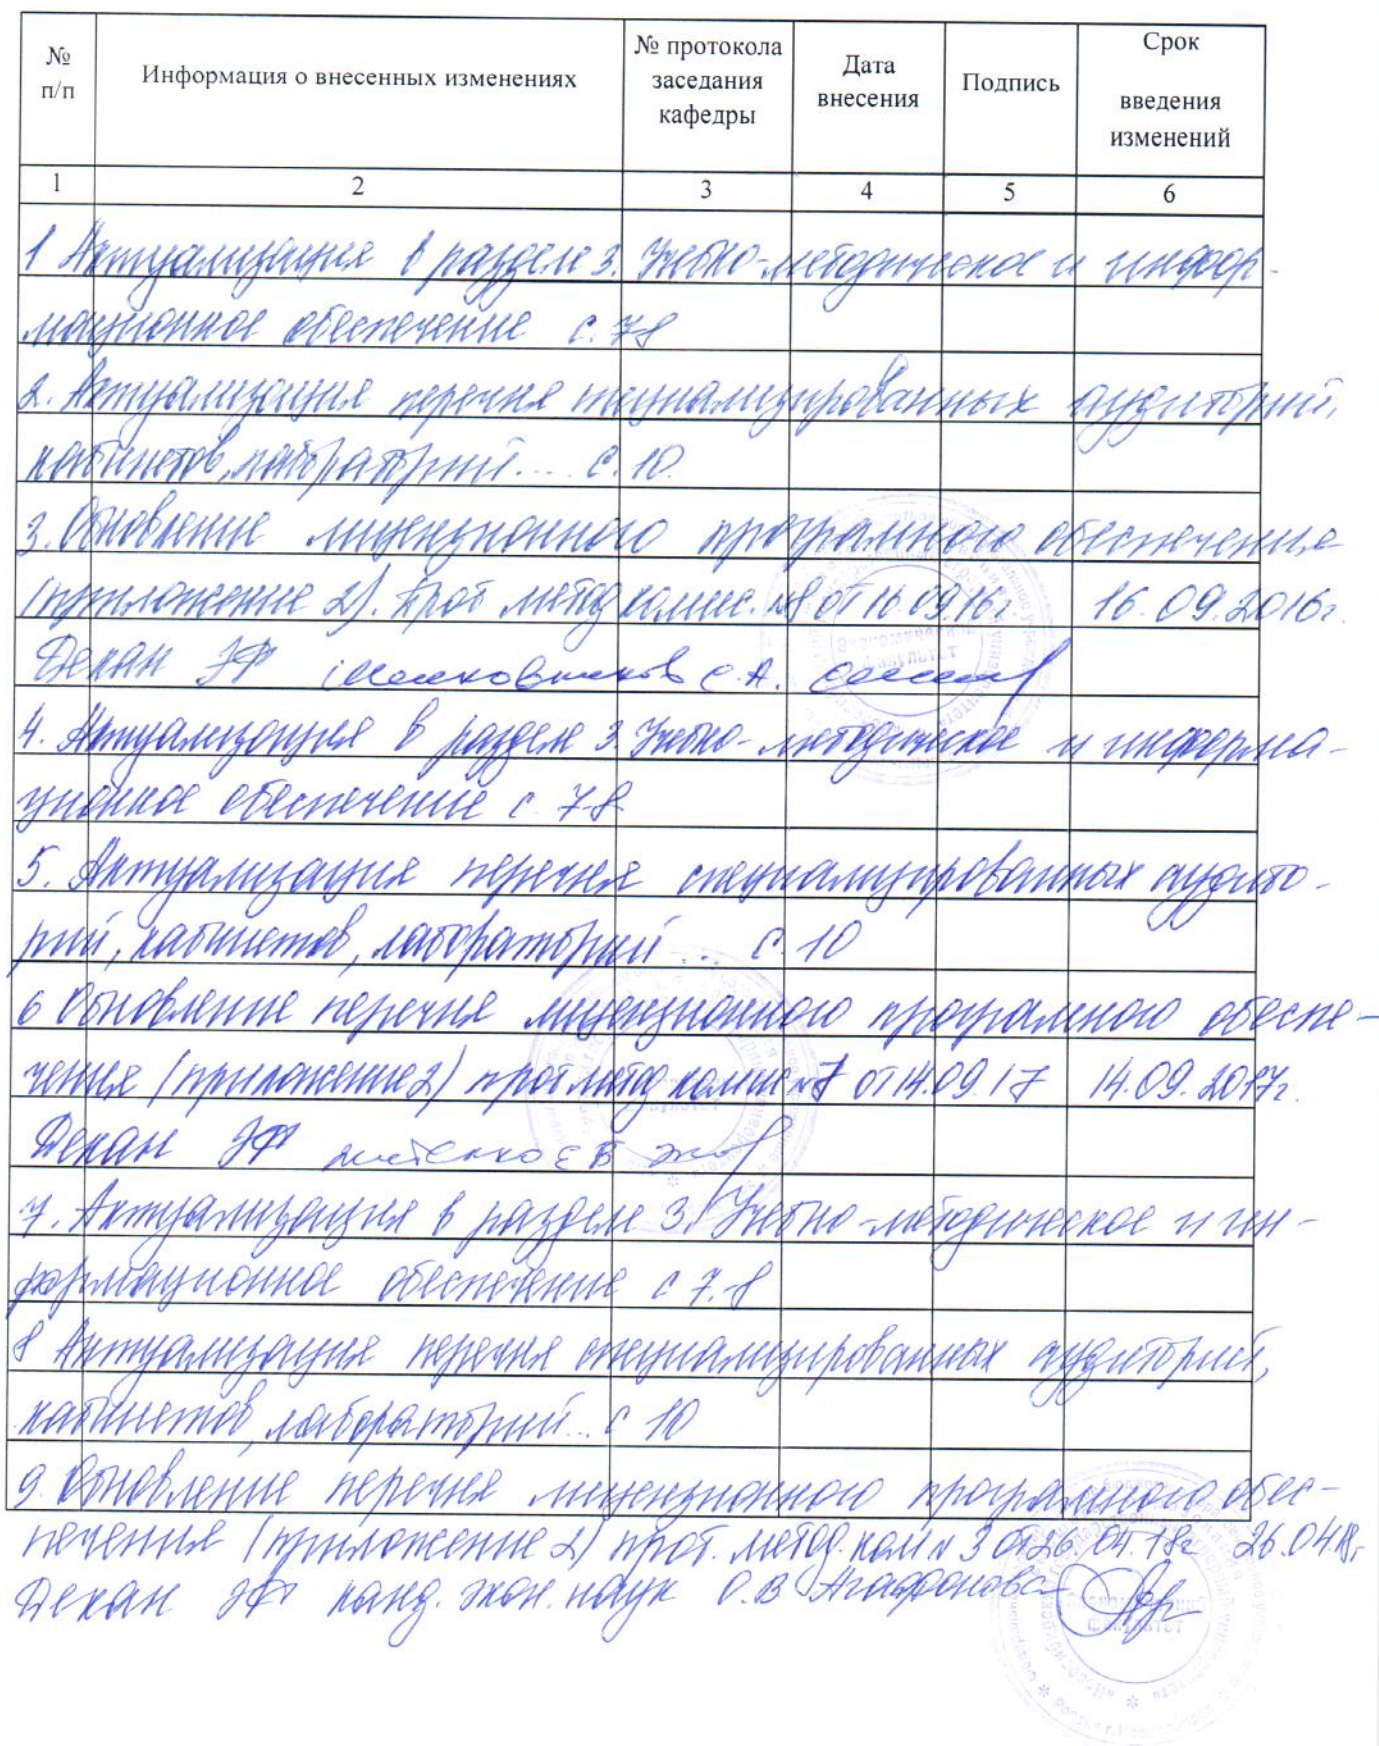 № п/п
Информация о внесенных изменениях
№ протокола заседания кафедры
Дата внесения
Подпись
Срок введения изменений
1 2 3 4 5 6
1 Актуализация в разделе 3. Учебно-методическое и инфор-
мационное обеспечение с. 7-8
2. Актуализация перечня специализированных аудиторий,
кабинетов, лабораторий... с. 10.
3. Обновление лицензионного программного обеспечения
(приложение 2). Прот метод комис. №8 от 16.09.16г. 16.09.2016г.
Декан ЭФ Шелковников С.А.
4. Актуализация в разделе 3. Учебно-методическое и информа-
ционное обеспечение с. 7-8
5. Актуализация перечня специализированных аудито-
рий, кабинетов, лабораторий... с. 10
6 Обновление перечня лицензионного программного обеспе-
чения (приложение 2) прот метод комис №7 от 14.09.17 14.09.2017г.
Декан ЭФ Е В
7. Актуализация в разделе 3. Учебно-методическое и ин-
формационное обеспечение с 7-8
8 Актуализация перечня специализированных аудиторий,
кабинетов, лабораторий... с 10
9. Обновление перечня лицензионного программного обес-
печения (приложение 2) прот. метод. ком № 3 от 26.04.18г 26.04.18г.
Декан ЭФ канд. экон. наук О.В Агафонова
Экономический факультет